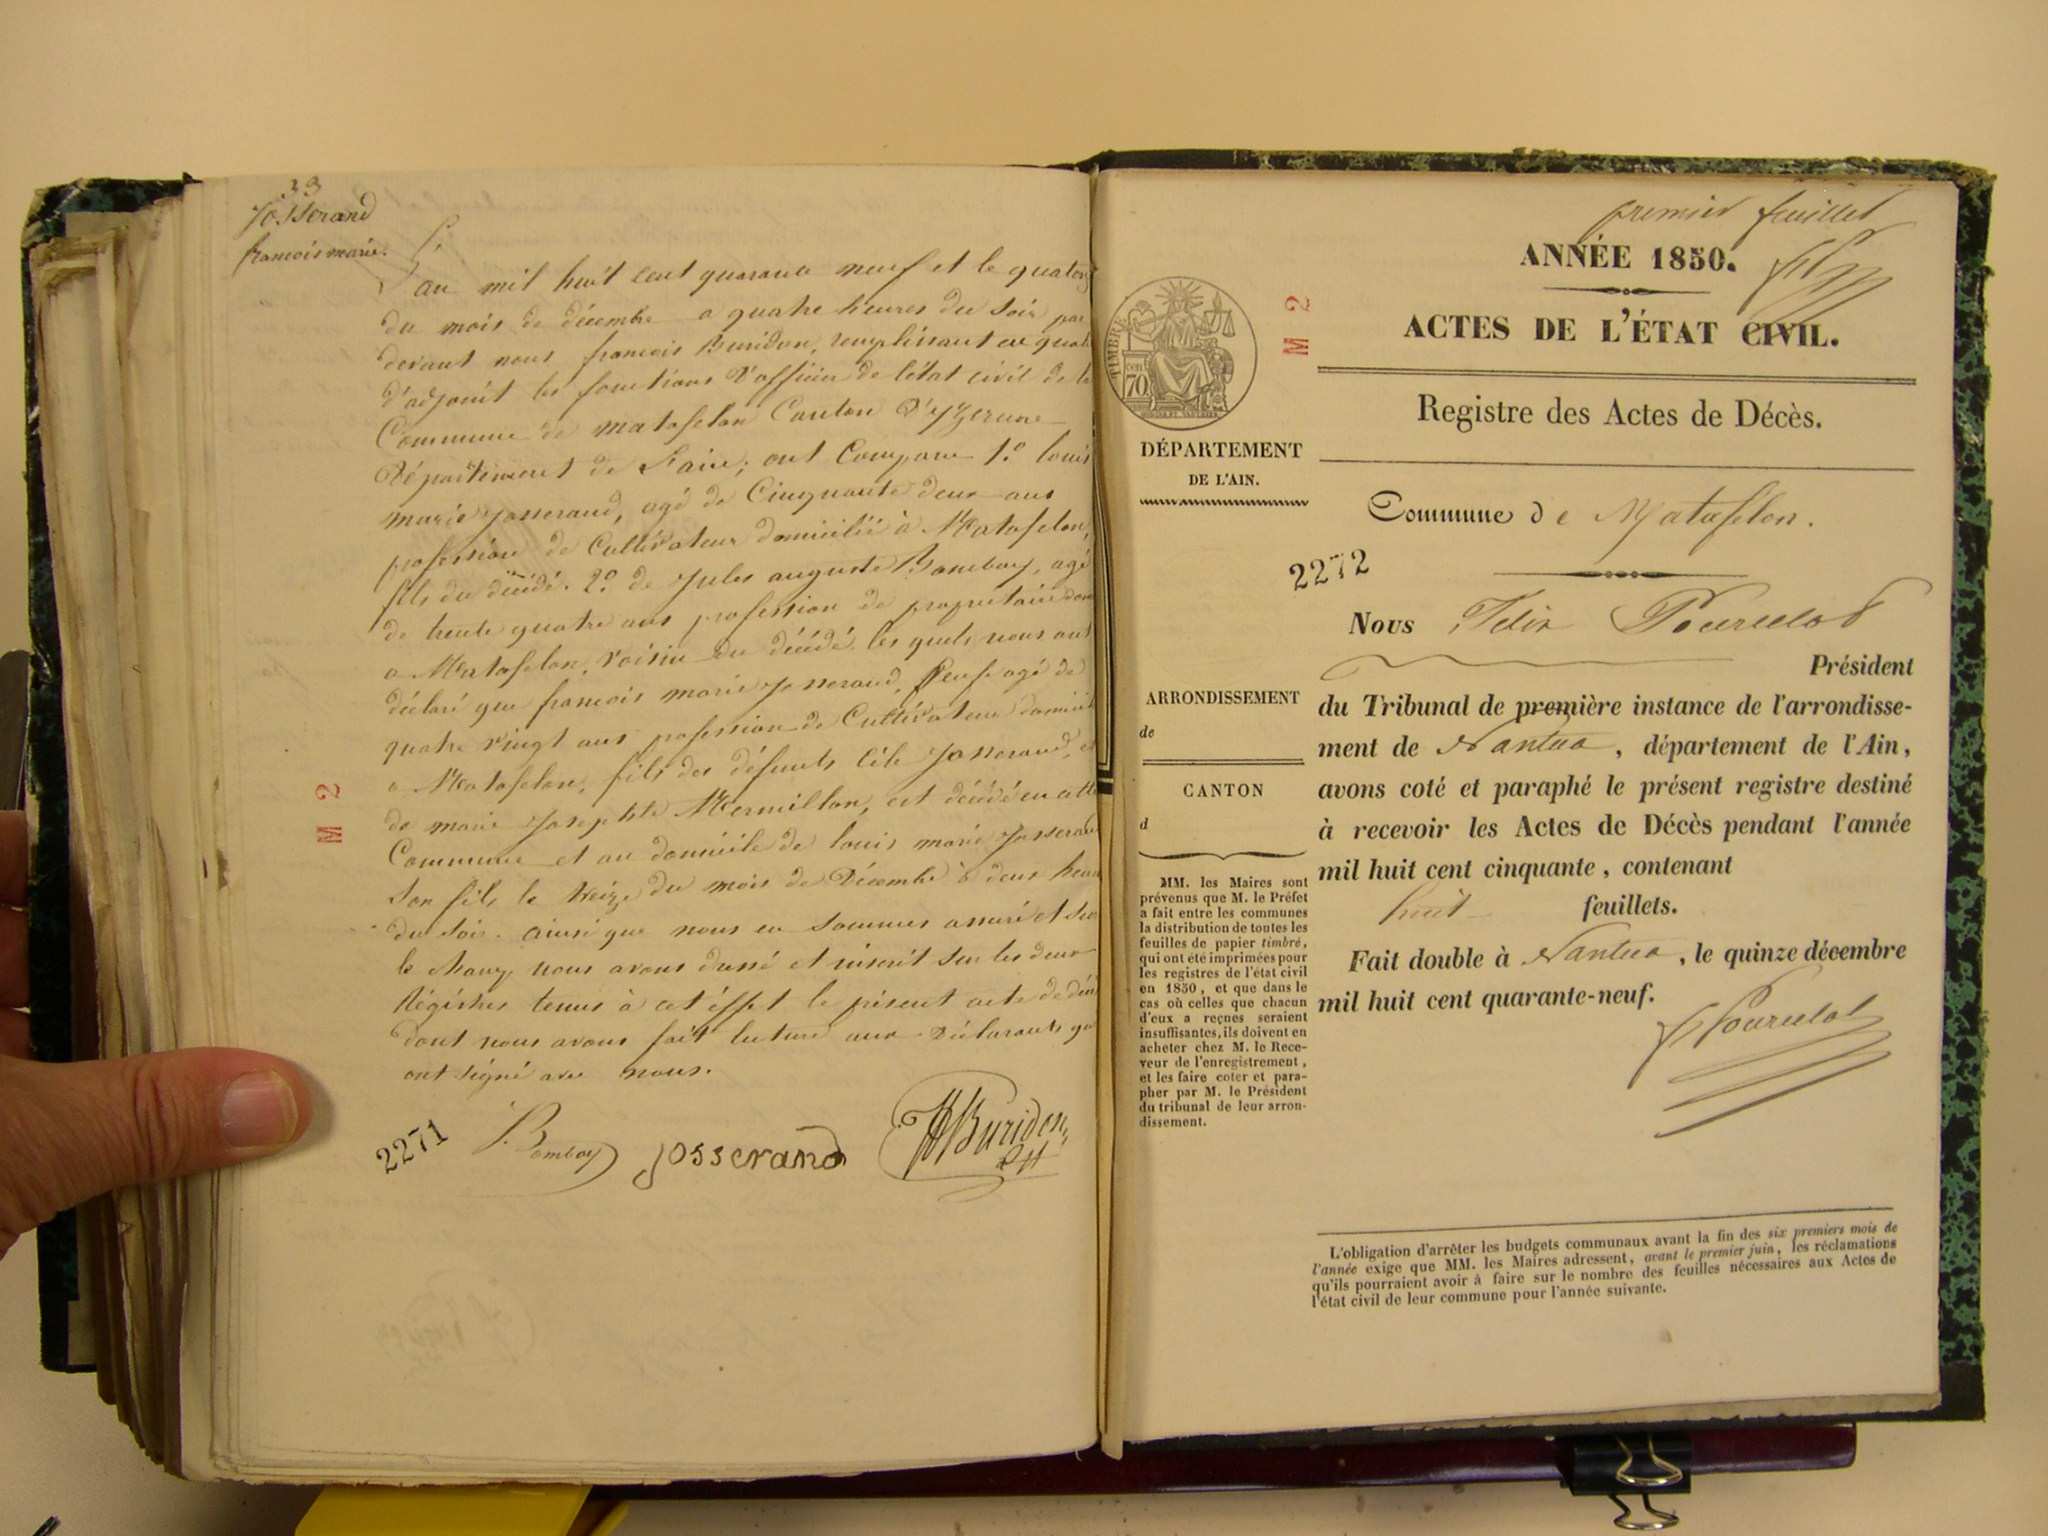 33
Josserand
francois marie.
L'an mil huit cent quarante neuf et le quatorz
du mois de décembre a quatre heures du soir par
devant nous francois Buridon, remplissant en quali
d'adjoint les fonctions d'officier de l'état civil de la
Commune de matafelon Canton d'yzernore
Département de l'ain; ont Comparu 1.º louis
marie josserand, agé de Cinquante deux ans
profession de Cultivateur domicilié à Matafelon,
fils du décédé. 2.º de jules auguste Bomboy, agé
de trente quatre ans profession de propriétaire dom
a Matafelon, voisin du décédé, les quels nous ont
déclaré que francois marie josserand, veuf agé de
quatre vingt ans profession de Cultivateur domicili
a Matafelon, fils des défunts josserand, et
de marie josephte Mermillon, est décédé en cette
Commune et au domicile de louis marie josserand
Son fils, le treize du mois de Décembre à deux heures
du soir. ainsi que nous en sommes assuré et sur
le champ nous avons dressé et inscrit sur les deux
Régistres tenus à cet éffet le présent acte de décè
dont nous avons fait lecture aux Déclarants qui
ont signé avec nous.
2271 J. Bomboy josserand Buridon
M 2
premier feuillet
ANNÉE 1850.
ACTES DE L'ÉTAT CIVIL.
M 2
TIMBRE
70
Registre des Actes de Décès.
DÉPARTEMENT
DE L'AIN.
Commune de Matafelon.
2272
Nous Felix Pourcelot
Président
du Tribunal de première instance de l'arrondisse-
ment de Nantua, département de l'Ain,
avons coté et paraphé le présent registre destiné
à recevoir les Actes de Décès pendant l'année
mil huit cent cinquante, contenant
huit feuillets.
Fait double à Nantua, le quinze décembre
mil huit cent quarante-neuf.
F Pourcelot
ARRONDISSEMENT
de
CANTON
d
MM. les Maires sont
prévenus que M. le Préfet
a fait entre les communes
la distribution de toutes les
feuilles de papier timbré,
qui ont été imprimées pour
les registres de l'état civil
en 1850, et que dans le
cas où celles que chacun
d'eux a reçues seraient
insuffisantes, ils doivent en
acheter chez M. le Rece-
veur de l'enregistrement,
et les faire coter et para-
pher par M. le Président
du tribunal de leur arron-
dissement.
L'obligation d'arrêter les budgets communaux avant la fin des six premiers mois de
l'année exige que MM. les Maires adressent, avant le premier juin, les réclamations
qu'ils pourraient avoir à faire sur le nombre des feuilles nécessaires aux Actes de
l'état civil de leur commune pour l'année suivante.